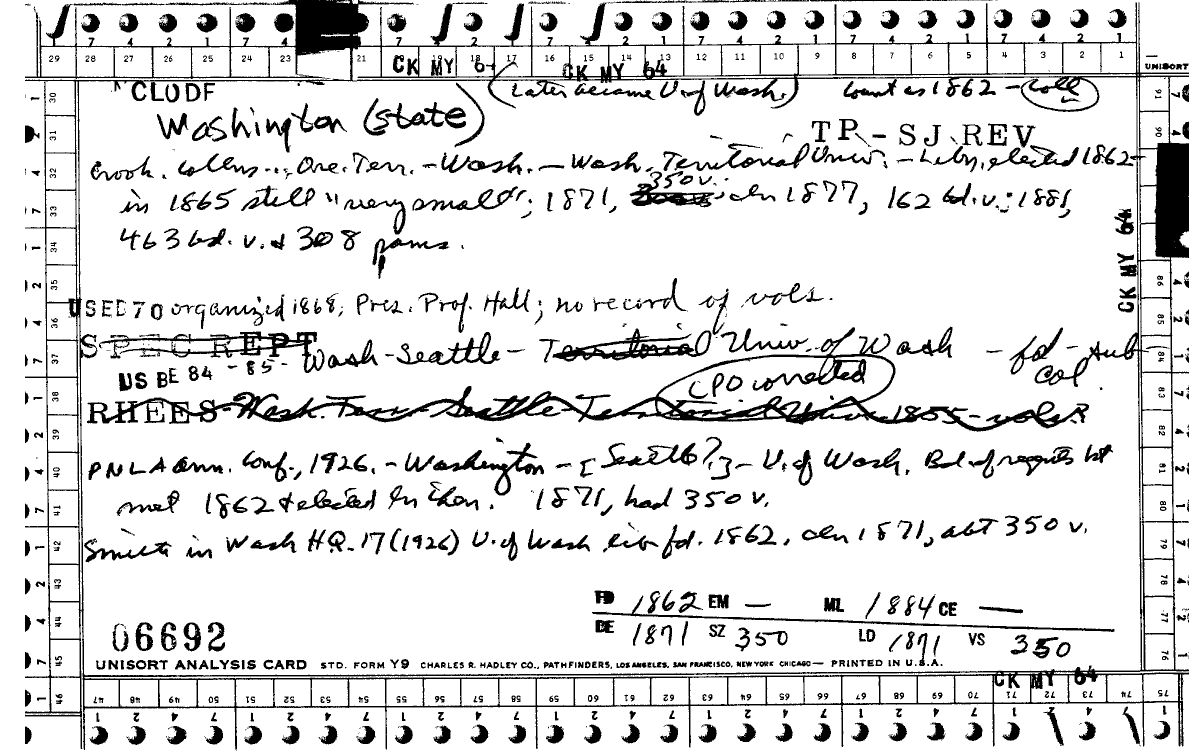 7 4 2 1 7 4 7 4 2 1 7 4 2 1 7 4 2 1 7 4 2 1
29 28 27 26 25 24 23 21 20 17 16 15 14 13 12 11 10 9 8 7 6 5 4 3 2 1
CK MY 64 CK MY 64 UNISORT
CLODF (Later became U. of Wash.) Count as 1862 - coll
Washington (state)
TP - SJ REV
Crook. Collns... Ore. Terr. - Wash. - Wash. Territorial Univ. - Libn. elected 1862-
in 1865 still "very small"; 1871, 350 v. cln 1877, 162 bd. v.; 1881,
463 bd. v. & 308 pams.
CK MY 64
USED 70 organized 1868; Pres. Prof. Hall; no record of vols.
SPEC REPT
US BE 84 - 85 - Wash - Seattle - Territorial Univ. of Wash - fd - sub
Col
CPO corrected
RHEES - Wash. Terr - Seattle - Territorial Univ - 1855 - vols?
PNLA Ann. Conf., 1926. - Washington - [Seattle?] - U. of Wash. Bd. of regents 1st
met 1862 & elected ln then. 1871, had 350 v.
Smith in Wash H.Q. 17 (1926) U. of Wash lib fd. 1862, cln 1871, abt 350 v.
FD 1862 EM — ML 1884 CE —
DE 1871 SZ 350 LD 1871 VS 350
06692
UNISORT ANALYSIS CARD STD. FORM Y9 CHARLES R. HADLEY CO., PATHFINDERS, LOS ANGELES, SAN FRANCISCO, NEW YORK CHICAGO — PRINTED IN U.S.A.
CK MY 64
47 48 49 50 51 52 53 54 55 56 57 58 59 60 61 62 63 64 65 66 67 68 69 70 71 72 73 74 75
1 2 4 7 1 2 4 7 1 2 4 7 1 2 4 7 1 2 4 7 1 2 4 7 1 2 4 7 1